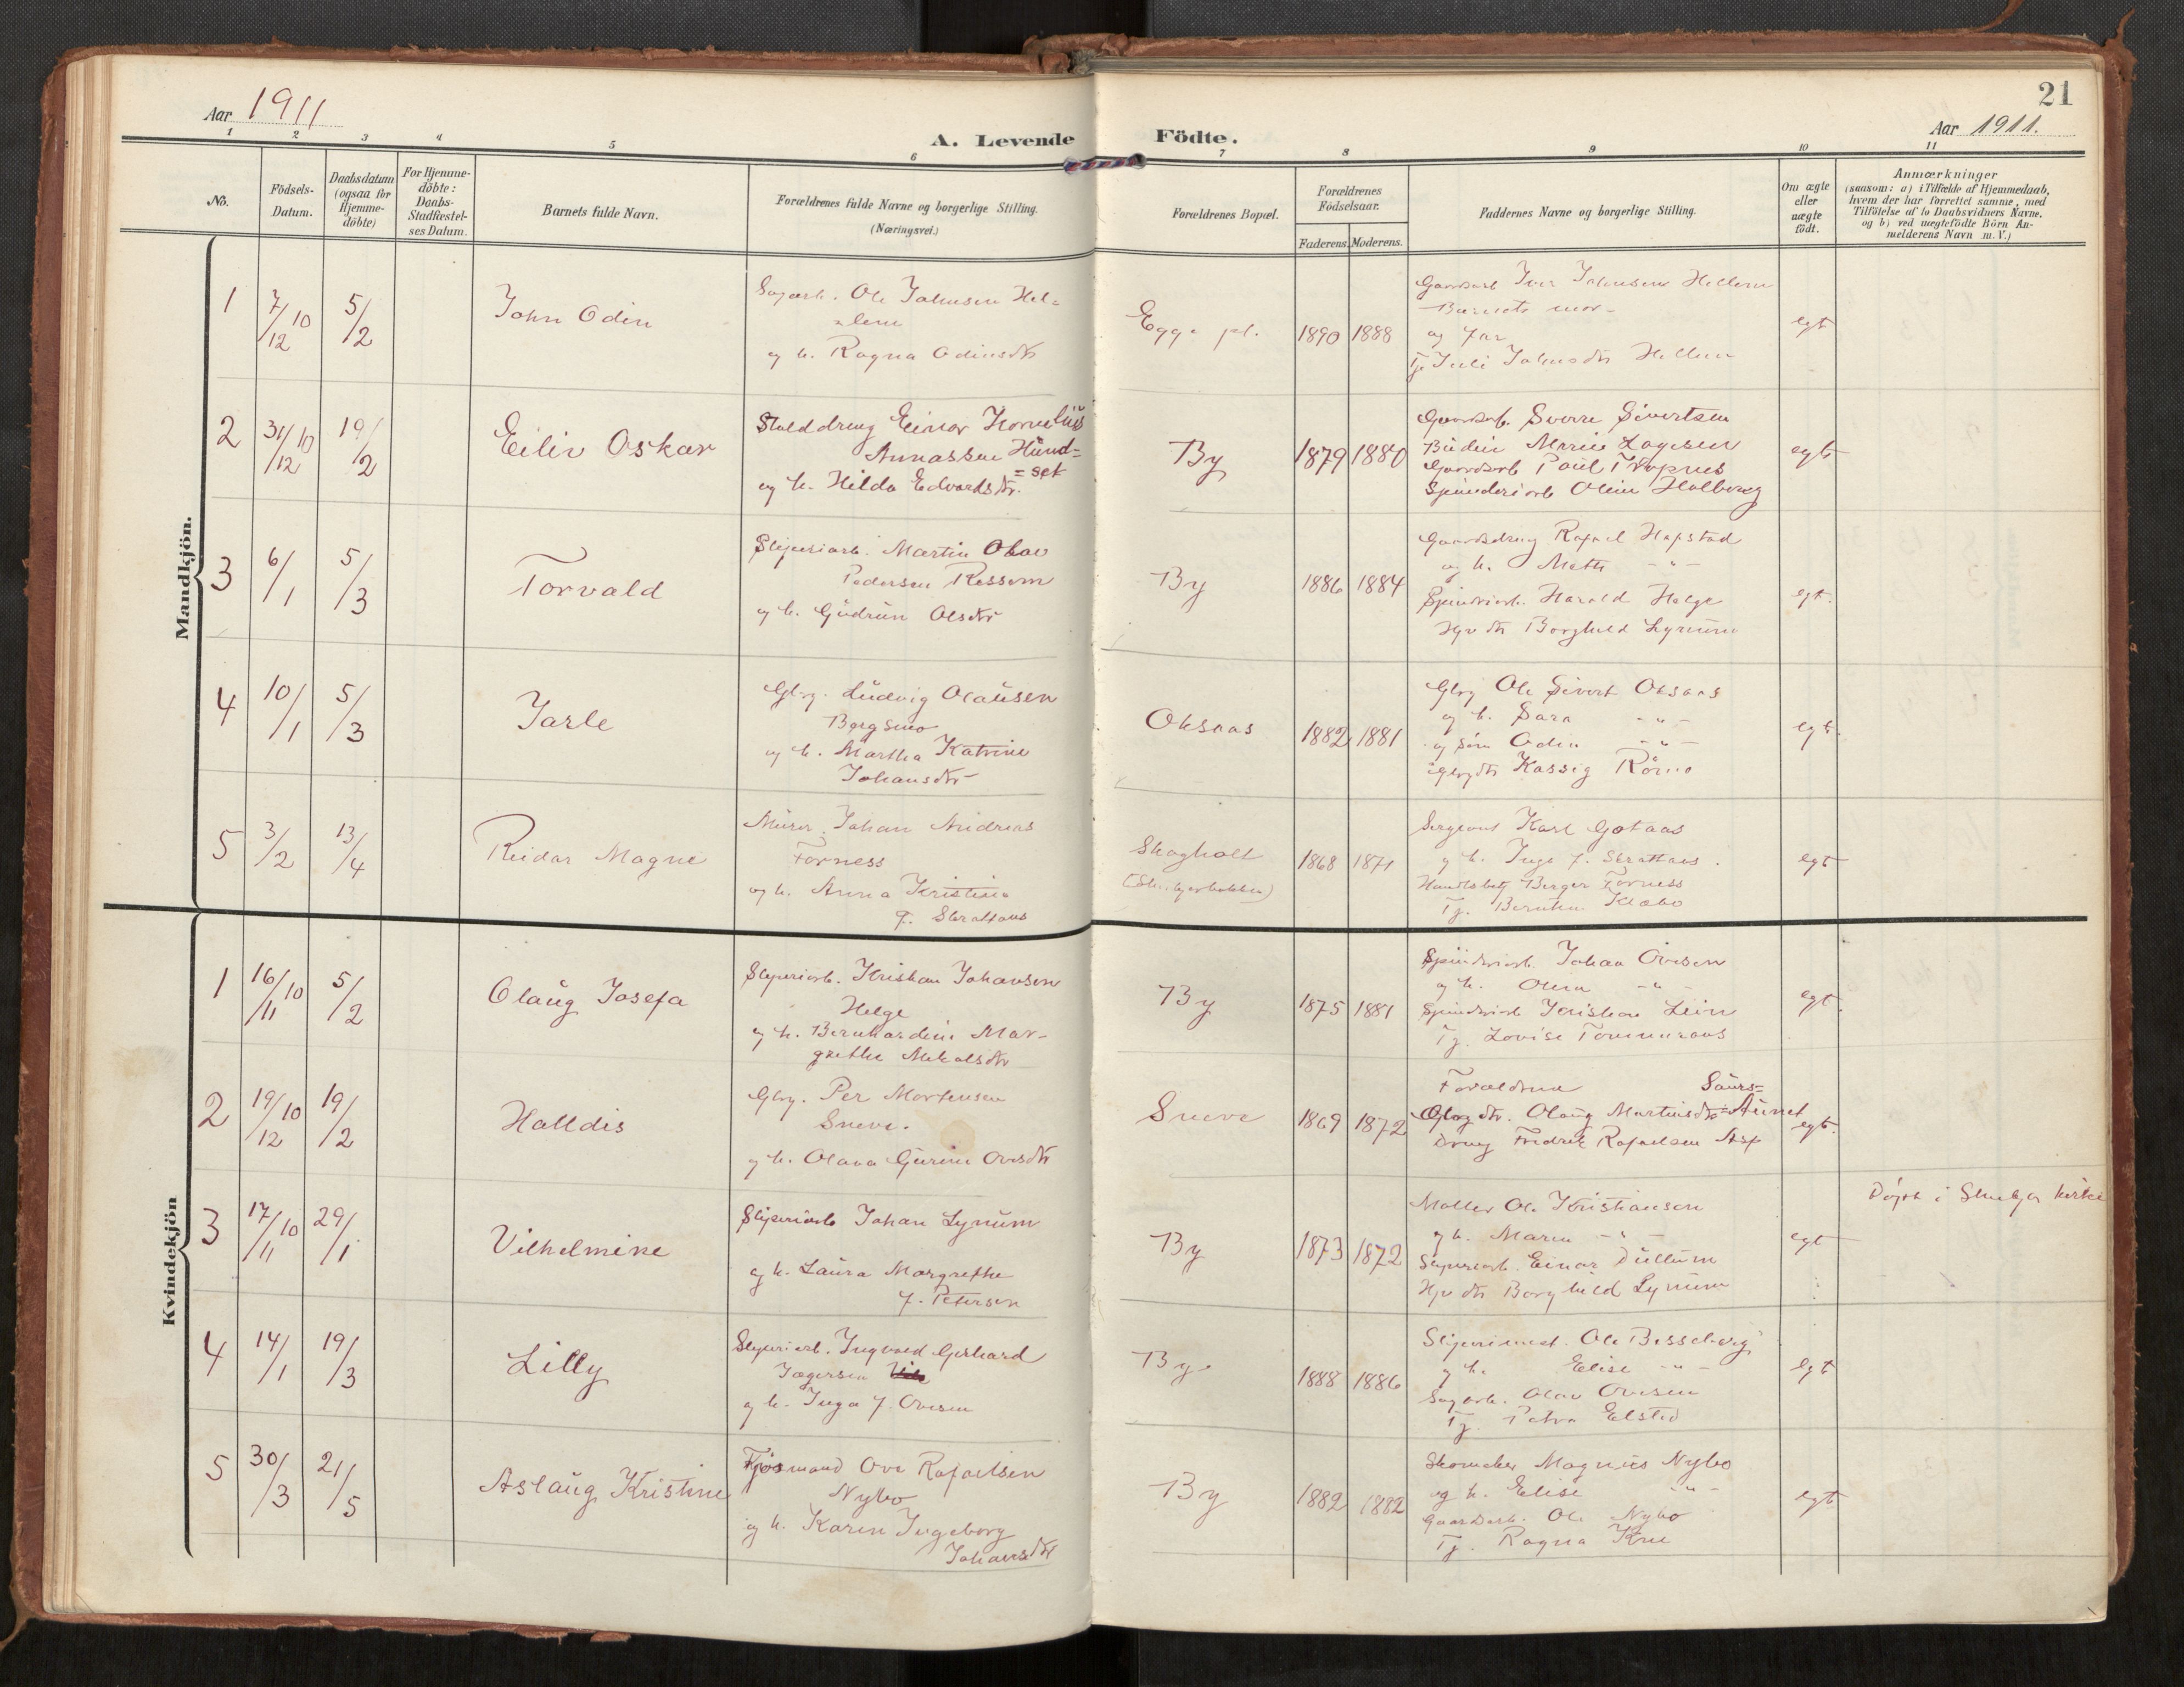 21
Aar 1911
Aar 1911.
A. Levende Födte.
1 2 3 4 5 6 7 8 9 10 11
No.
Födsels-
Datum.
Daabsdatum
(ogsaa for
Hjemme-
döbte)
For Hjemme-
döbte:
Daabs-
Stadfæstel-
ses Datum.
Barnets fulde Navn.
Forældrenes fulde Navne og borgerlige Stilling.
(Næringsvei.)
Forældrenes Bopæl.
Forældrenes
Födselsaar.
Faderens. Moderens.
Faddernes Navne og borgerlige Stilling.
Om ægte
eller
uægte
födt.
Anmærkninger
(saasom: a) i Tilfælde af Hjemmedaab,
hvem der har forrettet samme, med
Tilföielse af to Daabsvidners Navne.
og b) ved uægtefödte Börn An-
melderens Navn m. V.)
Mandkjön.
1
7/12 10
5/2
John Odin
Sagarb. Ole Johnsen Hel=
=lem
og h. Ragna Odinsdtr
Egge pl.
1890 1888
Gaardsarb Iver Johnsen Hellem
Barnets mor
og far
Tj. Juli Johnsdtr Hellem
egt
2
31/12 10
19/2
Eiliv Oskar
Stalddreng Einar Kornelius
Annassen Hund=
=set
og h. Hilda Edvardsdtr.
By
1879 1880
Gaardsarb. Sverre Sivertsen
Budeie Marie Lagesen
Gaardsarb Paul
Spinderiarb Oline Halberg
egt
3
6/1
5/3
Torvald
Sliperiarb. Martin Olav
Pedersen Ressem
og h. Gudrun Olsdtr
By
1886 1884
Gaardsdreng Rafael Hapstad
og h. Mette -"-
Spinderiarb. Harald Helge
Hpv dtr Borghild Lynum
egt.
4
10/1
5/3
Jarle
Gbrg. Ludvig Olausen
Bergsmo
og h. Martha Katrine
Johansdtr
Oksaas
1882 1881
Gbrg Ole Sivert Oksaas
og h. Sara -"-
og søn Odin -"-
Gbrg dtr Kassig Römo
egt.
5
3/2
13/4
Reidar Magne
Murer. Johan Andreas
Forness
og h. Anna Kristine
f. Skrattaas
Skogholt
1868 1871
Sergeant Karl Gotaas
og h. Inga f. Skrattaas.
Handlsbetj Berger Forness
Tj. Klæbo
egt
Kvindekjön
1
16/11 10
5/2
Olaug Josefa
Sliperiarb. Kristian Johansen
Helge
og h. Bernhardine Mar-
grethe Mikalsdtr
By
1875 1881
Spinderiarb. Johan Ovesen
og h. Olina -"-
Spinderiarb Kristian Lein
Tj. Lovise Tommeraas
egt.
2
19/12 10
19/2
Halldis
Gbrg. Per Mortensen
Sneve.
og h. Olava Gurine Ovesdtr
Sneve
1869 1872
Forældrene
Saurs=
Gbrg dtr. Olaug Martinsdtr =Aunet
Dreng Fredrik Rafaelsen Asp
egt.
3
17/11 10
29/1
Vilhelmine
Sliperiarb Johan Lynum
og h. Laura Margrethe
f. Petersen
By
1873 1872
Møller Ole Kristiansen
og h. Maren -"-
Sliperiarb. Einar Dullum
Hpv dtr Borghild Lynum
egt
Døpt i Stenkjer kirke
4
14/1
19/3
Lilly
Sliperiarb. Ingvald Gerhard
Jægersen
og h. Inga f. Ovesen
By
1888 1886
Sliperimest. Ole Besseberg
og h. Elise -"-
Sagarb. Olav Ovesen
Tj. Petra Elstad
egt
5
30/3
21/5
Aslaug Kristine
Fjøsmand Ove Rafaelsen
Nybo
og h. Karen Ingeborg
Johansdtr
By
1882 1882
Skomaker Magnus Nybo
og h. Elise -"-
Gaardsarb. Ole Nybo
Tj. Ragna
egt